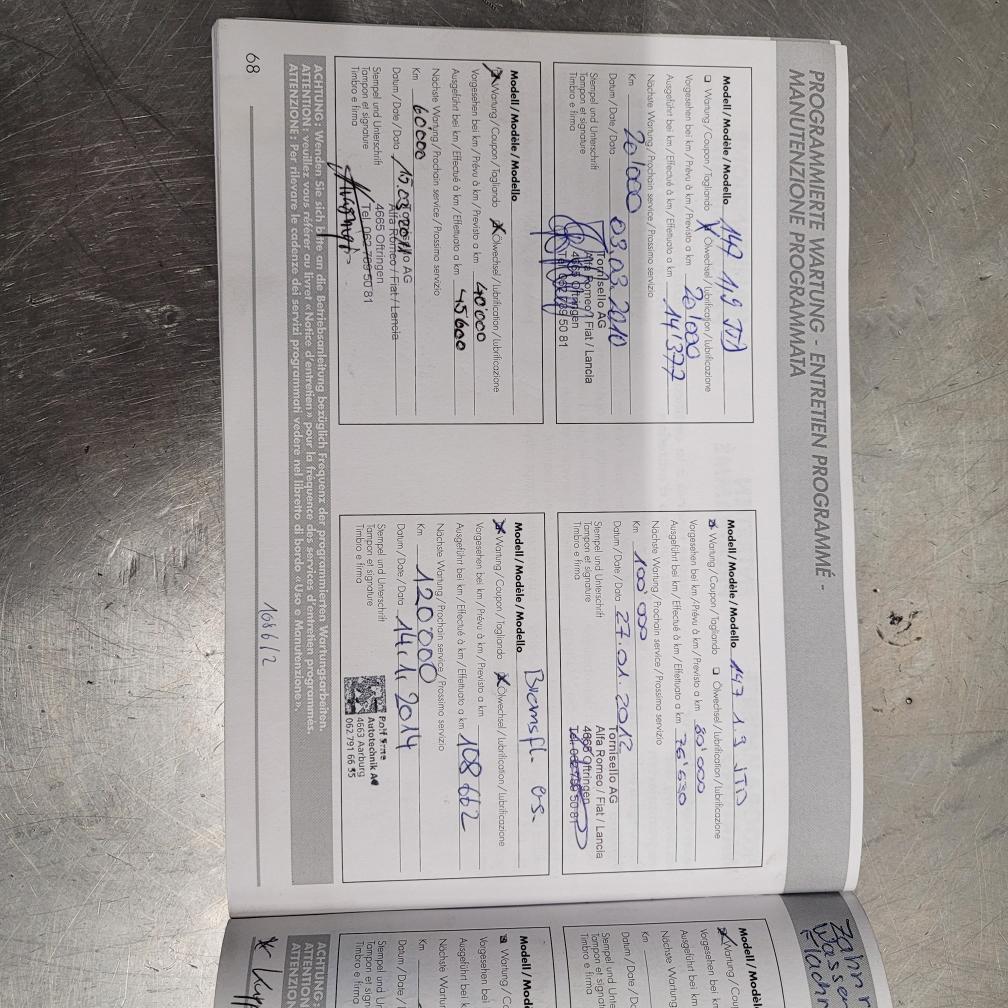 PROGRAMMIERTE WARTUNG - ENTRETIEN PROGRAMMÉ -
MANUTENZIONE PROGRAMMATA
Modell / Modèle / Modello 147 1.9 JTD
❏ Wartung / Coupon / Tagliando ❏ Ölwechsel / Lubrification / Lubrificazione
Vorgesehen bei km / Prévu à km / Previsto a km 20'000
Ausgeführt bei km / Effectué à km / Effettuato a km 14'377
Nächste Wartung / Prochain service / Prossimo servizio
Km 20'000
Datum / Date / Data 03.03.2010
Stempel und Unterschrift
Tampon et signature
Timbro e firma
Tornisello AG
Alfa Romeo / Fiat / Lancia
4665 Oftringen
50 81
Modell / Modèle / Modello
Wartung / Coupon / Tagliando Ölwechsel / Lubrification / Lubrificazione
Vorgesehen bei km / Prévu à km / Previsto a km 40'000
Ausgeführt bei km / Effectué à km / Effettuato a km 45600
Nächste Wartung / Prochain service / Prossimo servizio
Km 60'000
Datum / Date / Data
Stempel und Unterschrift
Tampon et signature
Timbro e firma
AG
Alfa Romeo / Fiat / Lancia
4665 Oftringen
Tel. 062 789 50 81
Modell / Modèle / Modello 147 1.9 JTD
Wartung / Coupon / Tagliando ❏ Ölwechsel / Lubrification / Lubrificazione
Vorgesehen bei km / Prévu à km / Previsto a km 80'000
Ausgeführt bei km / Effectué à km / Effettuato a km 76'530
Nächste Wartung / Prochain service / Prossimo servizio
Km 100'000
Datum / Date / Data 27.01.2012
Stempel und Unterschrift
Tampon et signature
Timbro e firma
Tornisello AG
Alfa Romeo / Fiat / Lancia
4665 Oftringen
Tel. 062 789 50 81
Modell / Modèle / Modello Bremsfl. es.
Wartung / Coupon / Tagliando Ölwechsel / Lubrification / Lubrificazione
Vorgesehen bei km / Prévu à km / Previsto a km
Ausgeführt bei km / Effectué à km / Effettuato a km 108 662
Nächste Wartung / Prochain service / Prossimo servizio
Km 120'000
Datum / Date / Data 14.1.2014
Stempel und Unterschrift
Tampon et signature
Timbro e firma
Autotechnik AG
4663 Aarburg
062 791 66 35
ACHTUNG: Wenden Sie sich bitte an die Betriebsanleitung bezüglich Frequenz der programmierten Wartungsarbeiten.
ATTENTION: veuillez vous référer au livret «Notice d'entretien» pour la fréquence des services d'entretien programmés.
ATTENZIONE: Per rilevare le cadenze dei servizi programmati vedere nel libretto di bordo «Uso e Manutenzione».
68
Modell / Modèle
Wartung / Cou
Vorgesehen bei km
Ausgeführt bei k
Nächste Wartung
Km
Datum / Date / D
Stempel und Unte
Tampon et signat
Timbro e firma
Modell / Mod
Wartung / C
Vorgesehen bei k
Ausgeführt bei k
Nächste War
Km
Datum / Date
Stempel und Un
Tampon et sign
Timbro e firma
ACHTUNG:
ATTENTION
ATTENZION